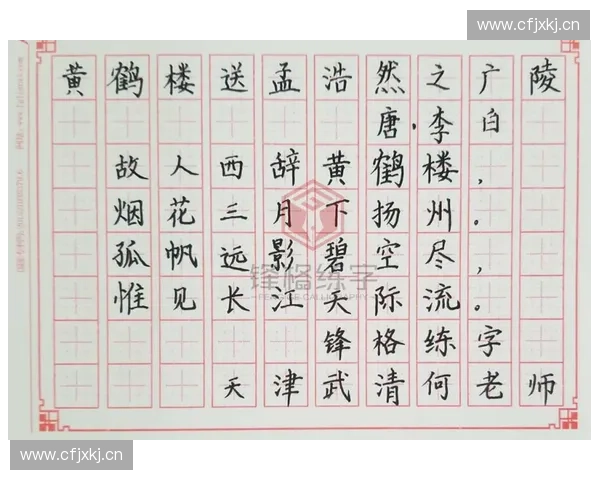 www.cfjxkj.cn
黄鹤楼送孟浩然之广陵
唐·李白
故人西辞黄鹤楼，
烟花三月下扬州。
孤帆远影碧空尽，
惟见长江天际流。
锋格练字
FENGGE CALLIGRAPHY
锋格练字
天津武清何老师
www.cfjxkj.cn
www.cfjxkj.cn